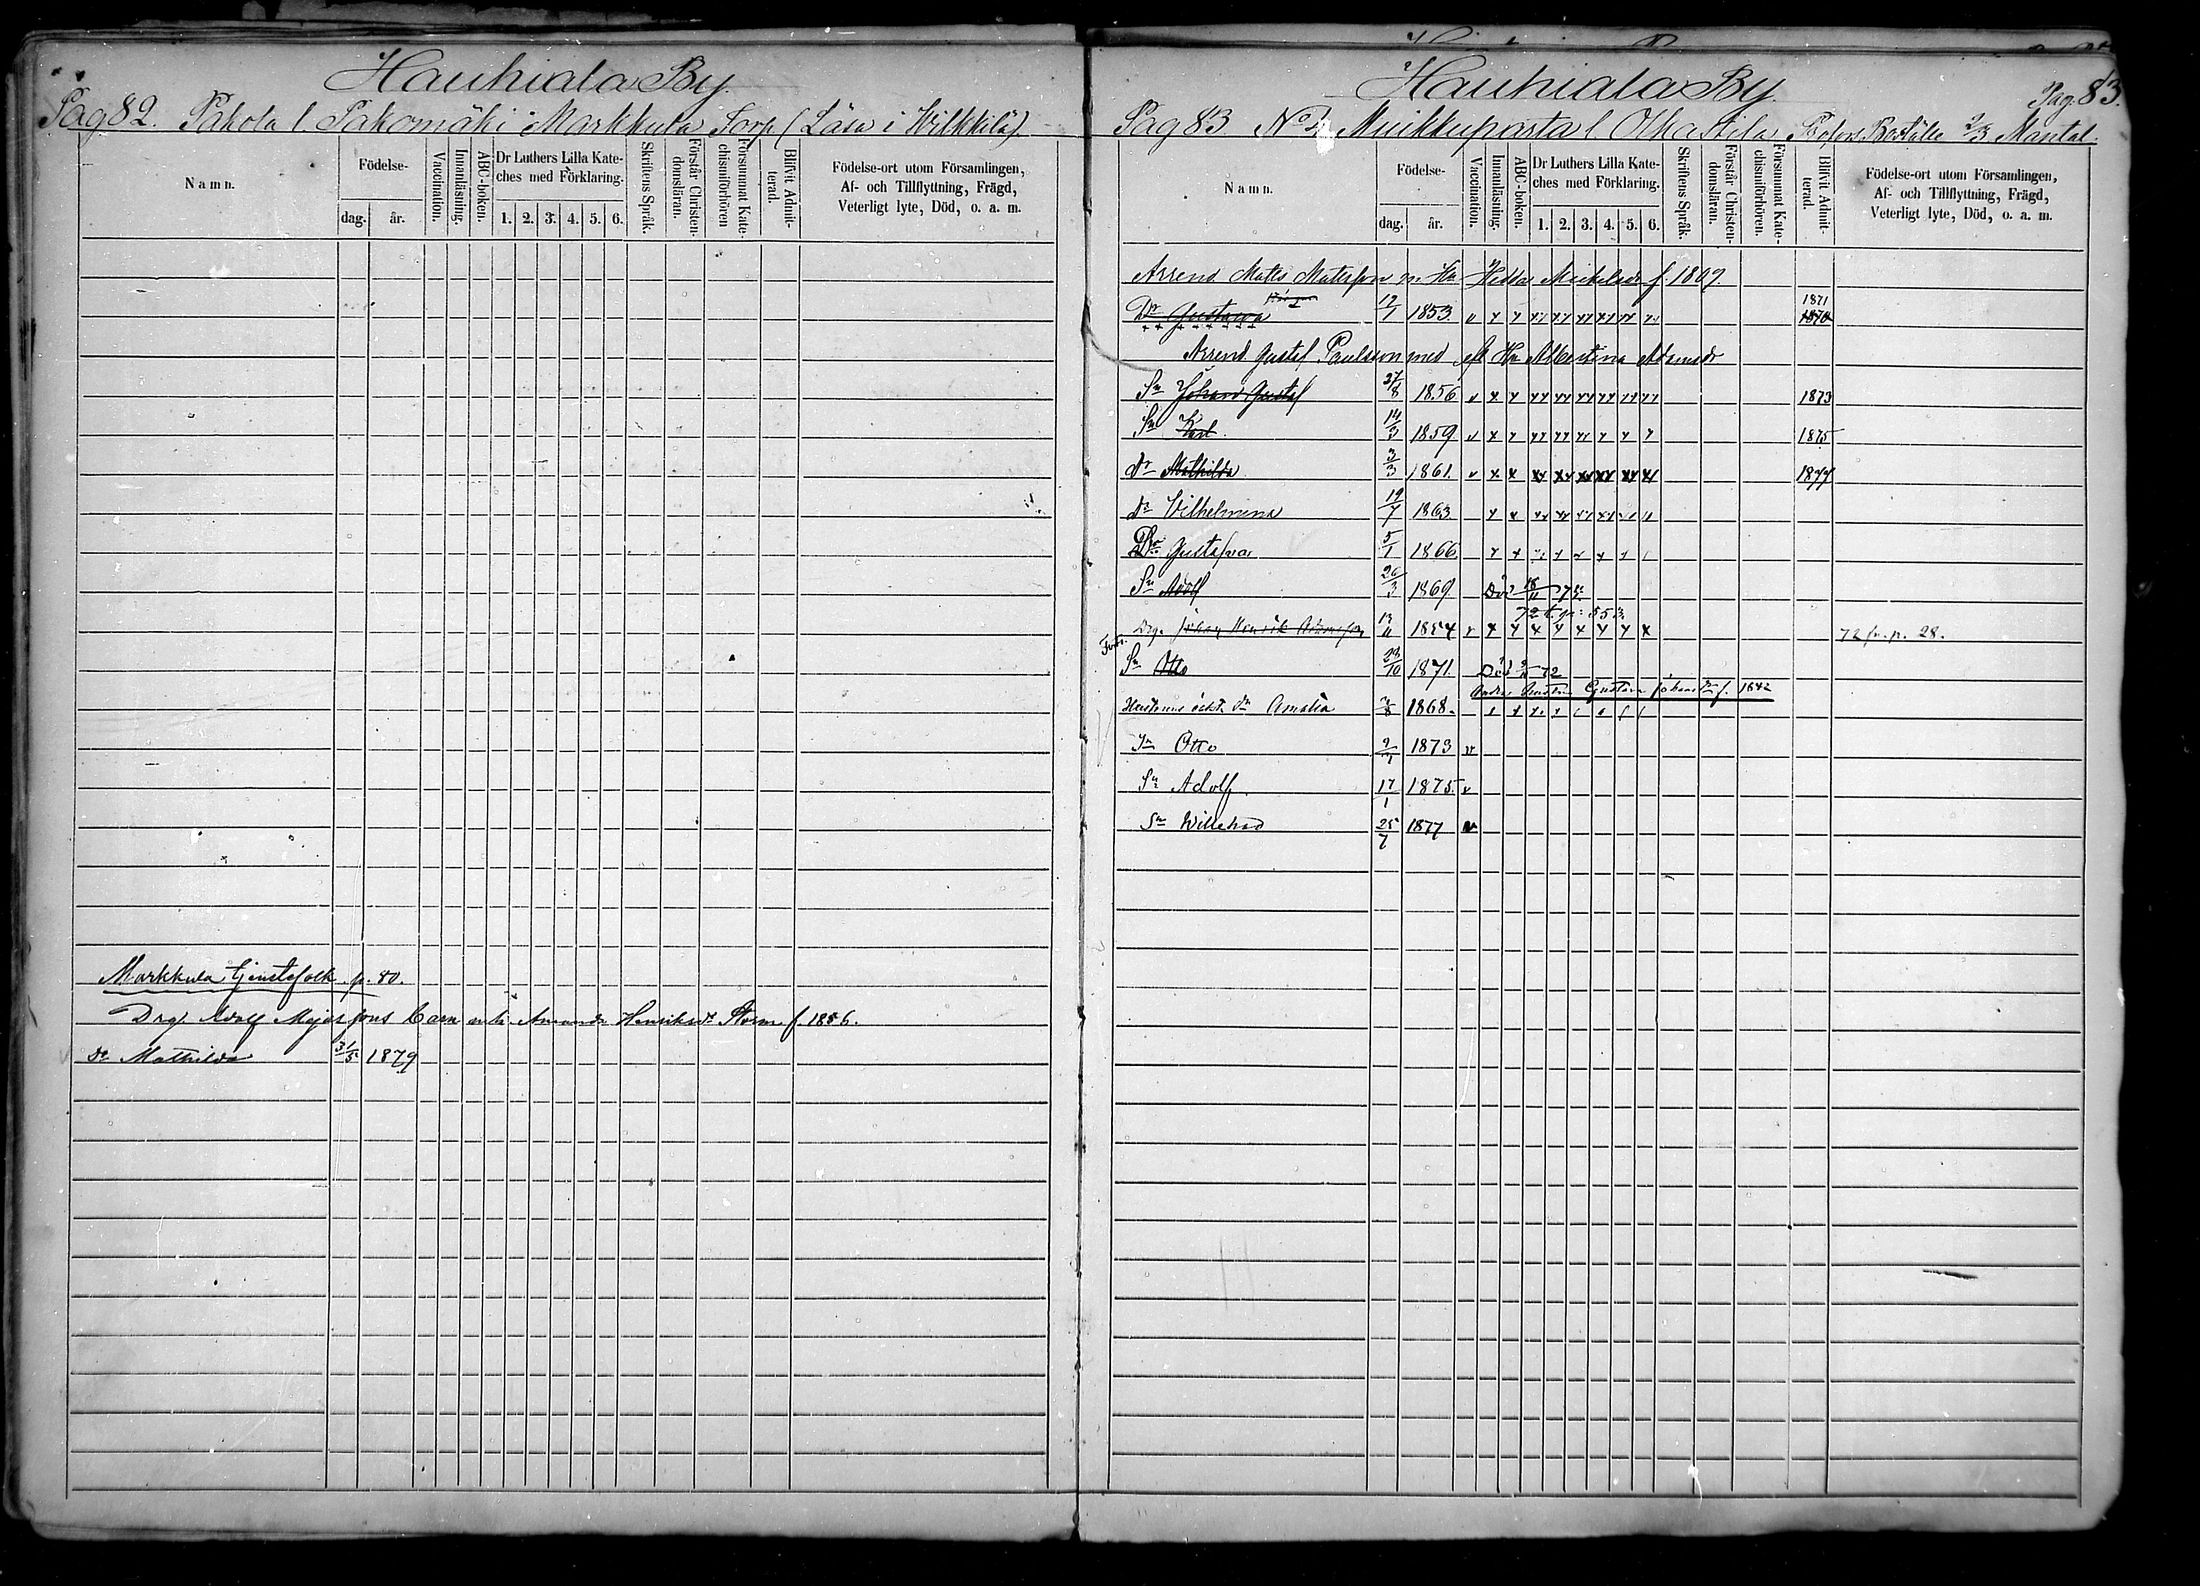 Hauhiala By.
Pag 82. Pakola l. Pakomäki Markkula Torp (Läsa i Wilkkilä)
Namn.
Födelse-
dag. år.
Vaccination.
Innanläsning.
ABC-boken.
Dr Luthers Lilla Kateches med Förklaring.
1. 2. 3. 4. 5. 6.
Skriftens Språk.
Förstår Christendomsläran.
Försummat Katechismiförhören
Blifvit Admitterad.
Födelse-ort utom Församlingen,
Af- och Tillflyttning, Frägd,
Veterligt lyte, Död, o. a. m.
Markkula tjenstefolk p. 80.
Drg. Adolf barn Amanda Henriksdr f. 1856.
dr Mathilda 31/5 1879
Hauhiala By.
Pag. 83.
Pag 83 No 2 Muikkuparta l. Olkastila Boställe 2/3 Mantal.
Namn.
Födelse-
dag. år.
Vaccination.
Innanläsning.
ABC-boken.
Dr Luthers Lilla Kateches med Förklaring.
1. 2. 3. 4. 5. 6.
Skriftens Språk.
Förstår Christendomsläran.
Försummat Katechismiförhören.
Blifvit Admitterad.
Födelse-ort utom Församlingen,
Af- och Tillflyttning, Frägd,
Veterligt lyte, Död, o. a. m.
Arrend. Matts Mattsson m. Hu Hedda Mickelsdr f. 1809.
Dr Gustava 1853. 1871 1870
Arrend Gustaf Paulsson med Hu Albertina Adamsdr
Sn Johan Gustaf 27/8 1856 1873
Sn Karl 14/3 1859 1875
dr Mathilda 3/3 1861. 1877
dr Vilhelmina 19/7 1863
Dr Gustafva 5/1 1866
Sn Adolf 26/3 1869 Död
Drg. Johan Henrik Adamsson 1854 72 fr. p. 28.
Sn Otto 28/10 1871. Död 72
Gustava Johansdr f. 1842
dr Amalia 1868.
Sn Otto 1873
Sn Adolf 17/1 1875.
Sn Willehad 25/7 1877